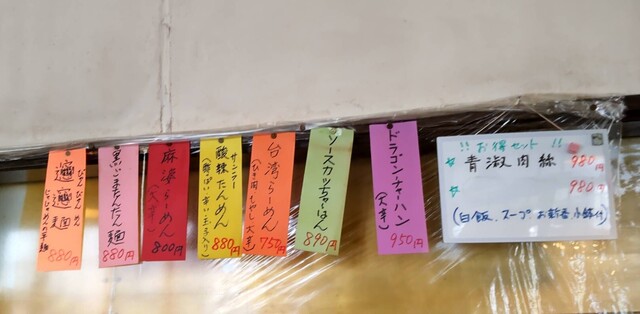 びゃんびゃんめん
𰻞𰻞麺
880円
黒ごまたんたん麺
880円
麻婆らーめん
(大辛)
800円
サンラー
酸辣たんめん
(酸っぱい・辛い・玉子入り)
880円
台湾らーめん
(ひき肉 もやし 大辛)
750円
ソースカツちゃーはん
890円
ドラゴンチャーハン
(大辛)
950円
!! お得セット !!
☆青淑肉絲 980円
☆ 980円
(白飯、スープ お新香 小鉢付)